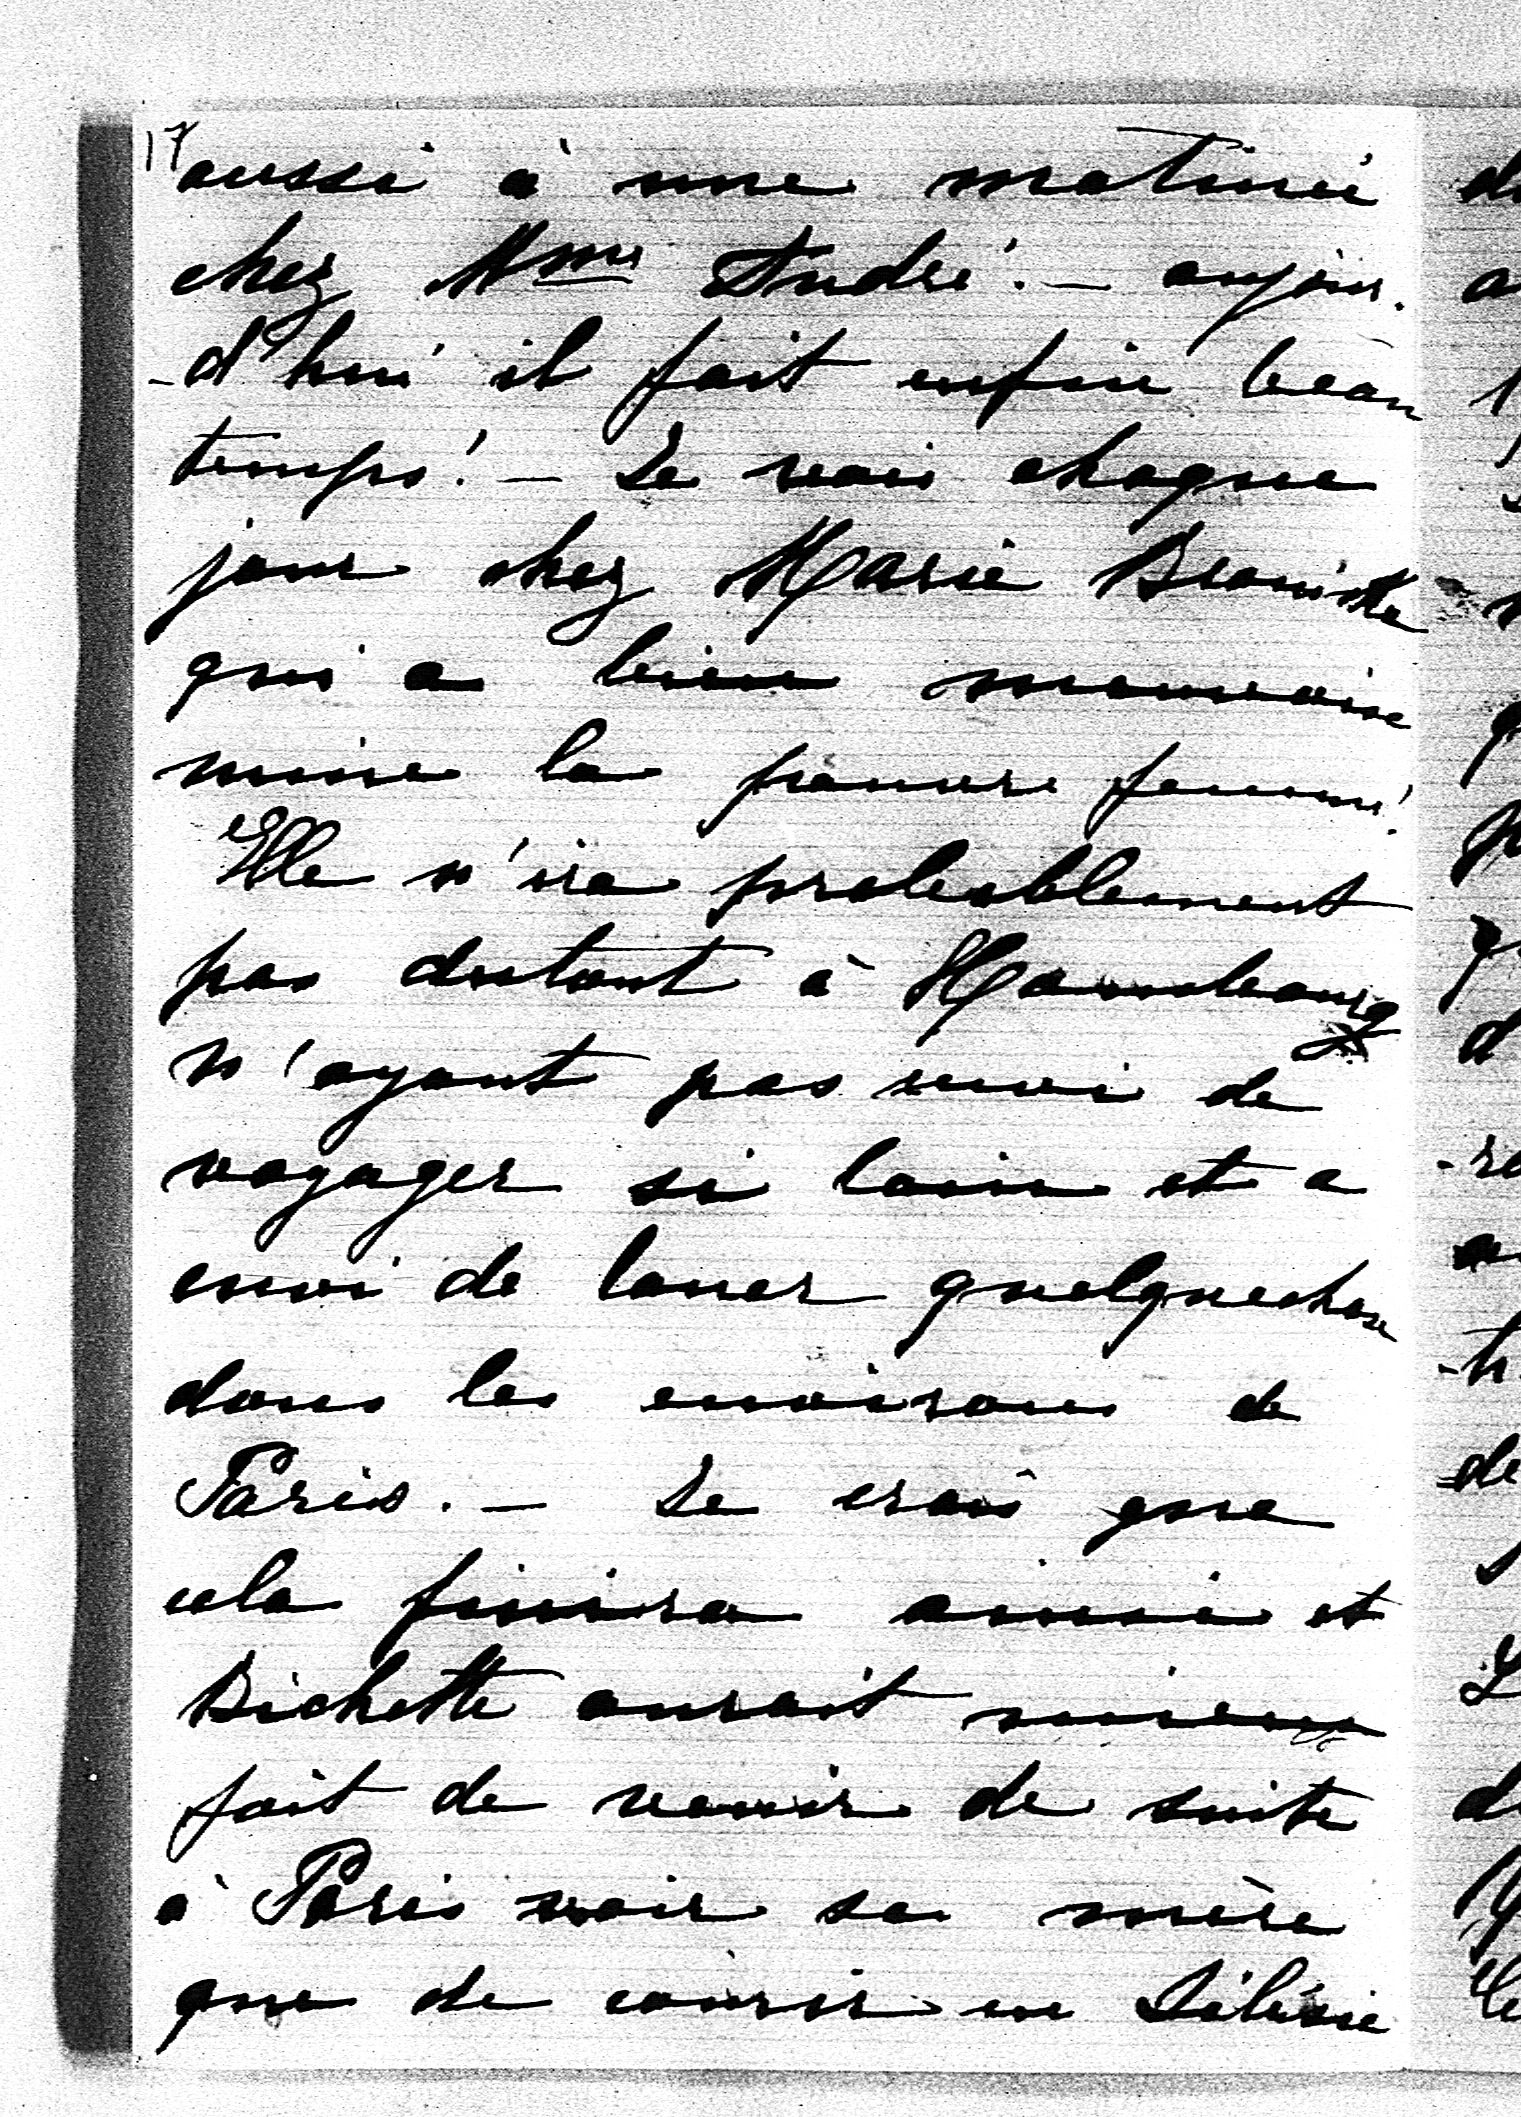 17
aussi à une matinée
chez Mme André. — aujour-
-d'hui il fait enfin beau
temps! — Je vais chaque
jour chez Marie
qui a bien mauvaise
mine la pauvre femme!
Elle n'ira probablement
pas du tout à Hambourg
n'ayant pas envi de
voyager si loin et a
envi de louer quelquechose
dans les environs de
Paris. — Je crois que
cela finira ainsi et
Bichette aurait mieux
fait de venir de suite
à Paris voir sa mère
que de courir en Silésie